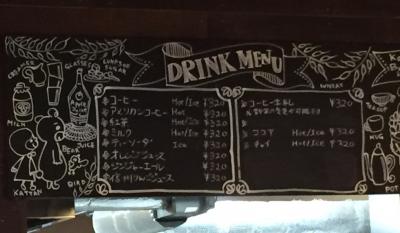 DRINK MENU
CREAMER
GLASSES
LUMPS OF SUGAR
MILK
BEAR
JUICE
BIRD
コーヒー Hot/Ice ¥320
アメリカンコーヒー Hot ¥320
紅茶 Hot/Ice ¥320
ミルク Hot/Ice ¥320
ティーソーダ Ice ¥320
オレンジジュース ¥320
ジンジャーエール ¥320
信州りんごジュース ¥320
コーヒー ¥320
ココア Hot/Ice ¥320
チャイ Hot/Ice ¥320
MUG
POT